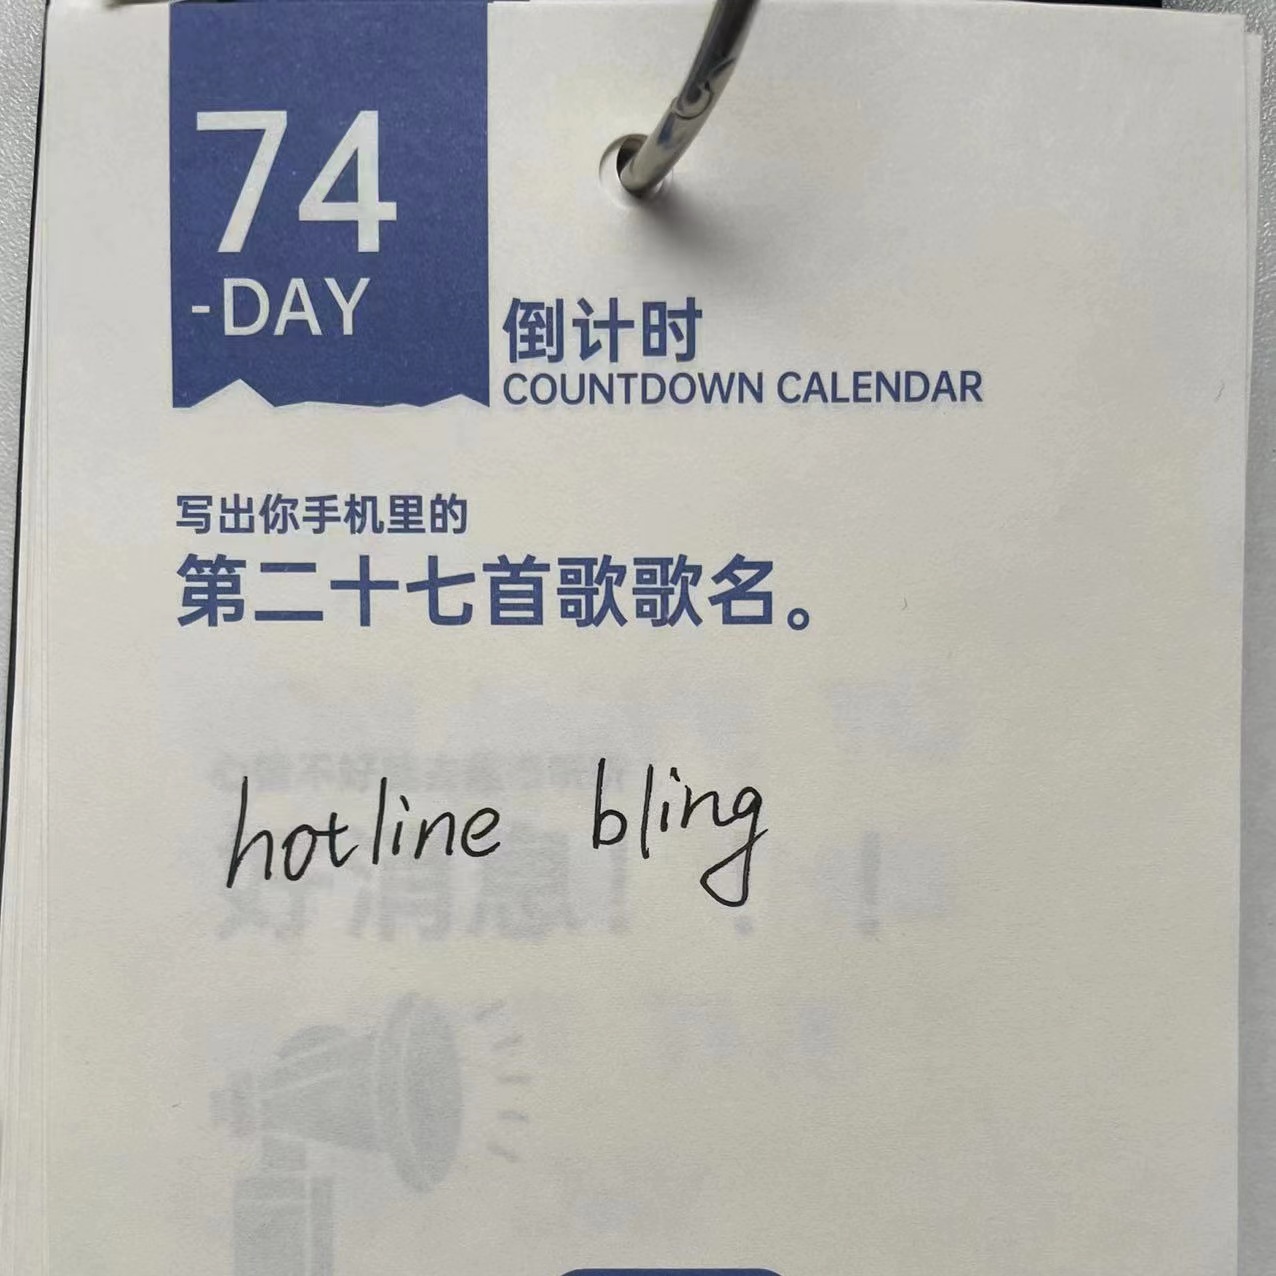 74
-DAY
倒计时
COUNTDOWN CALENDAR
写出你手机里的
第二十七首歌歌名。
hotline bling
好消息!